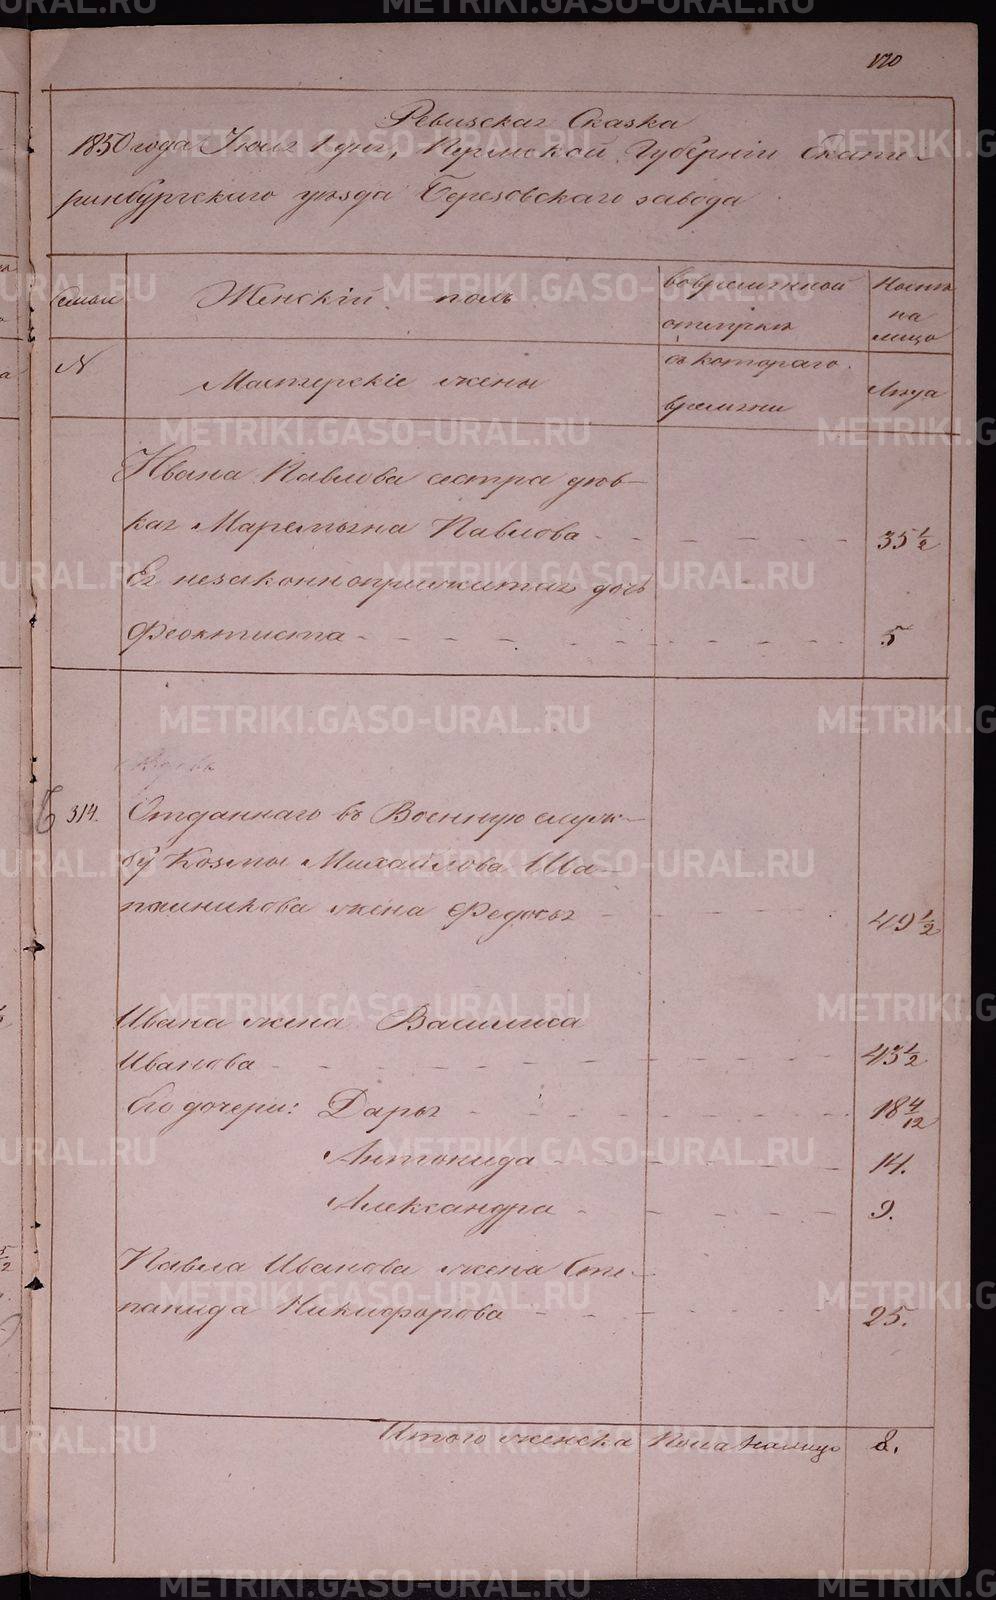 170
Ревизская Сказка
1850 года Июля 1 дня, Пермской Губернiи Екате-
ринбургскаго уѣзда Березовскаго завода
Семьи
Женскiй полъ
Во временной отлучкѣ
Нынѣ на лицо
№
Мастерскiе жены
съ котораго времени
Лѣта
Ивана Павлова сестра дѣв-
ка Маремьяна Павлова 35 1/2
Ея незаконноприжитая дочь
Феоктиста 5
314. Отданнаго въ Военную служ-
бу Козмы Михайлова Ша-
пошникова жена Федосья 49 1/2
Ивана жена Василиса
Иванова 43 1/2
Его дочери: Дарья 18 4/12
Антонида 14.
Александра 9.
Павла Иванова жена Сте-
панида Никифорова 25.
Итого женска пола налицо 8.
METRIKI.GASO-URAL.RU